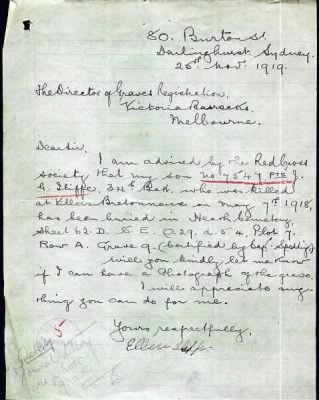 80. Burton St.
Darlinghurst Sydney.
25th Nov. 1919.
The Director of Graves Registration,
Victoria Barracks,
Melbourne.
Dear Sir,
I am advised by the Red Cross
Society that my son No 7547 Pte J.
Iliffe, 34th Batt, who was killed
at Villers Bretonneux on May 7th 1918,
has been buried in Heath Cemetery,
Sheet 62. D. S. E. Q. 29. d. 5. 4, Plot 7.
Row A. Grave 9. (Certified by Capt.
Will you kindly let me know
if I can have a Photograph of the grave.
I will appreciate any-
thing you can do for me.
Yours respectfully,
Ellen Iliffe
5